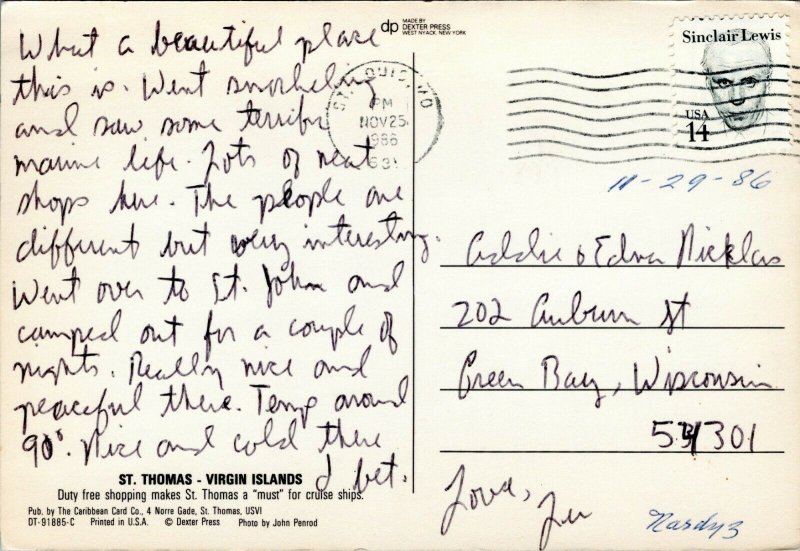 What a beautiful place
this is. Went snorkeling
and saw some terrific
marine life. Lots of neat
shops here. The people are
different but very interesting.
Went over to St. John and
camped out for a couple of
nights. Really nice and
peaceful there. Temp around
90°. Nice and cold there
I bet.
ST. THOMAS - VIRGIN ISLANDS
Duty free shopping makes St. Thomas a "must" for cruise ships.
Pub. by The Caribbean Card Co., 4 Norre Gade, St. Thomas, USVI
DT-91885-C Printed in U.S.A. © Dexter Press Photo by John Penrod
dp MADE BY
DEXTER PRESS
WEST NYACK, NEW YORK
PM
NOV 25
1986
Sinclair Lewis
USA
14
11-29-86
Addie & Edna Nicklas
202 Auburn St
Green Bay, Wisconsin
54301
Love,